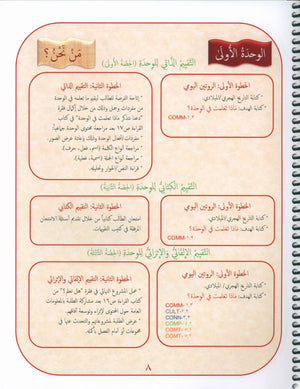 الوحدة الأولى
من نحن ؟
التقييم الذاتي للوحدة (الحصة الأولى)
الخطوة الأولى: الروتين اليومي
* كتابة التاريخ الهجري/الميلادي.
* كتابة الهدف: ماذا تعلمت في الوحدة؟
COMM-١.٣
الخطوة الثانية: التقييم الذاتي
* إتاحة الفرصة للطالب ليقيم ما تعلمه في الوحدة
من مفردات وفهم وذلك من خلال إكمال فقرة
"دعنا نتذكر ماذا تعلمت في الوحدة" في كتاب
القراءة ص١٧ بعد مراجعة محتوى الوحدة جماعياً:
* مراجعة مفردات الوحدة وذلك بإعادة عرض الصور.
* مراجعة أنواع الكلمة (اسم، فعل، حرف).
* مراجعة أنواع الجملة (اسمية، فعلية).
* قراءة النص/الحوار وتحليله.
التقييم الكتابي للوحدة (الحصة الثانية)
الخطوة الأولى: الروتين اليومي
* كتابة التاريخ الهجري/الميلادي.
* كتابة الهدف: ماذا تعلمت في الوحدة؟
COMM-١.٣
الخطوة الثانية: التقييم الكتابي
* امتحان الطالب كتابياً من خلال تقديم أسئلة الامتحان
المرفقة في كتيب التقييمات.
التقييم الإلقائي والإثرائي للوحدة (الحصة الثالثة)
الخطوة الأولى: الروتين اليومي
* كتابة التاريخ الهجري/الميلادي.
* كتابة الهدف: ماذا تعلمت في الوحدة؟
COMM-١.٣
CULT-٢.١
CONN-٣.١
COMP-٤.١
COMT-٥.١
COMT-٥.٢
الخطوة الثانية: التقييم الإلقائي والإثرائي
* عمل المشروع البنائي في فقرة "هل تعلم؟" من
كتاب القراءة ص١٦ بعد مشاركة الطلبة بالمعلومات
الواردة حول المحتوى لإثراء وتوسعة آفاقهم.
* عرض الطلبة لمشروعهم والتحدث عنه في
مجموعات أو أمام الصف كله.
٨